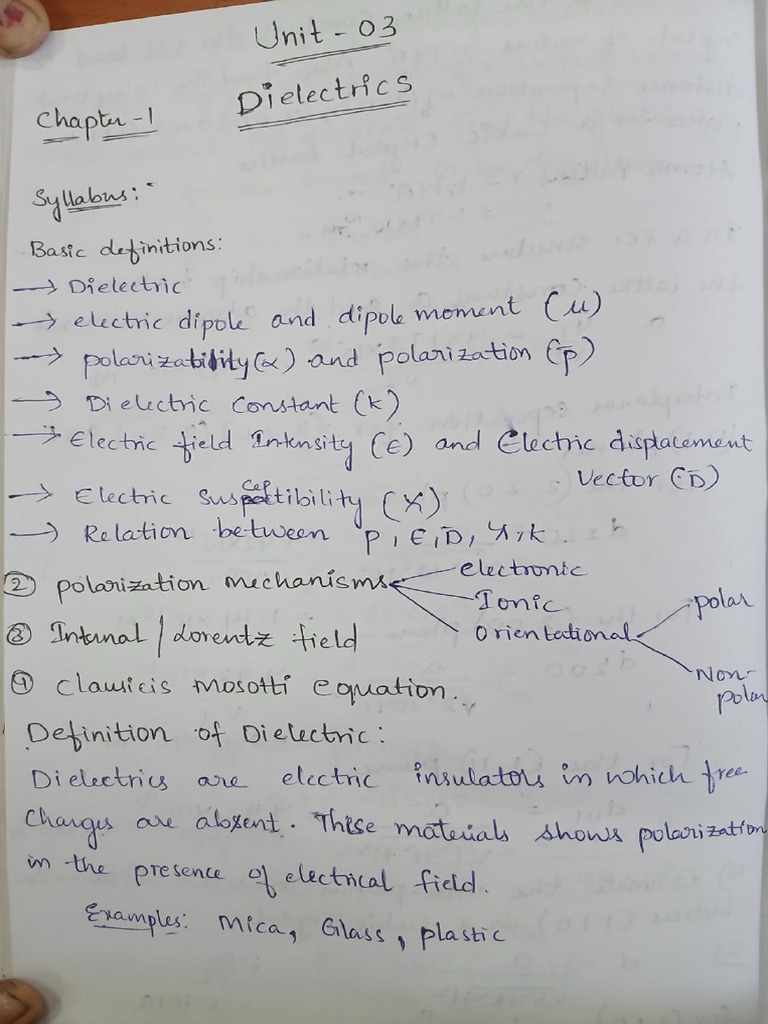 Unit - 03
Dielectrics
Chapter-1
Syllabus:-
Basic definitions:
→ Dielectric
→ electric dipole and dipole moment (μ)
→ polarizability (α) and polarization (p̄)
→ Dielectric constant (k)
→ Electric field Intensity (E) and Electric displacement
Vector (D̄)
→ Electric Susceptibility (X)
→ Relation between P, E, D̄, X, k.
② polarization mechanisms
electronic
Ionic
Orientational
polar
Non-
polar
③ Internal / Lorentz field
④ Clausicis Mosotti equation.
Definition of Dielectric:
Dielectrics are electric insulators in which free
charges are absent. These materials shows polarization
in the presence of electrical field.
Examples: Mica, Glass, plastic